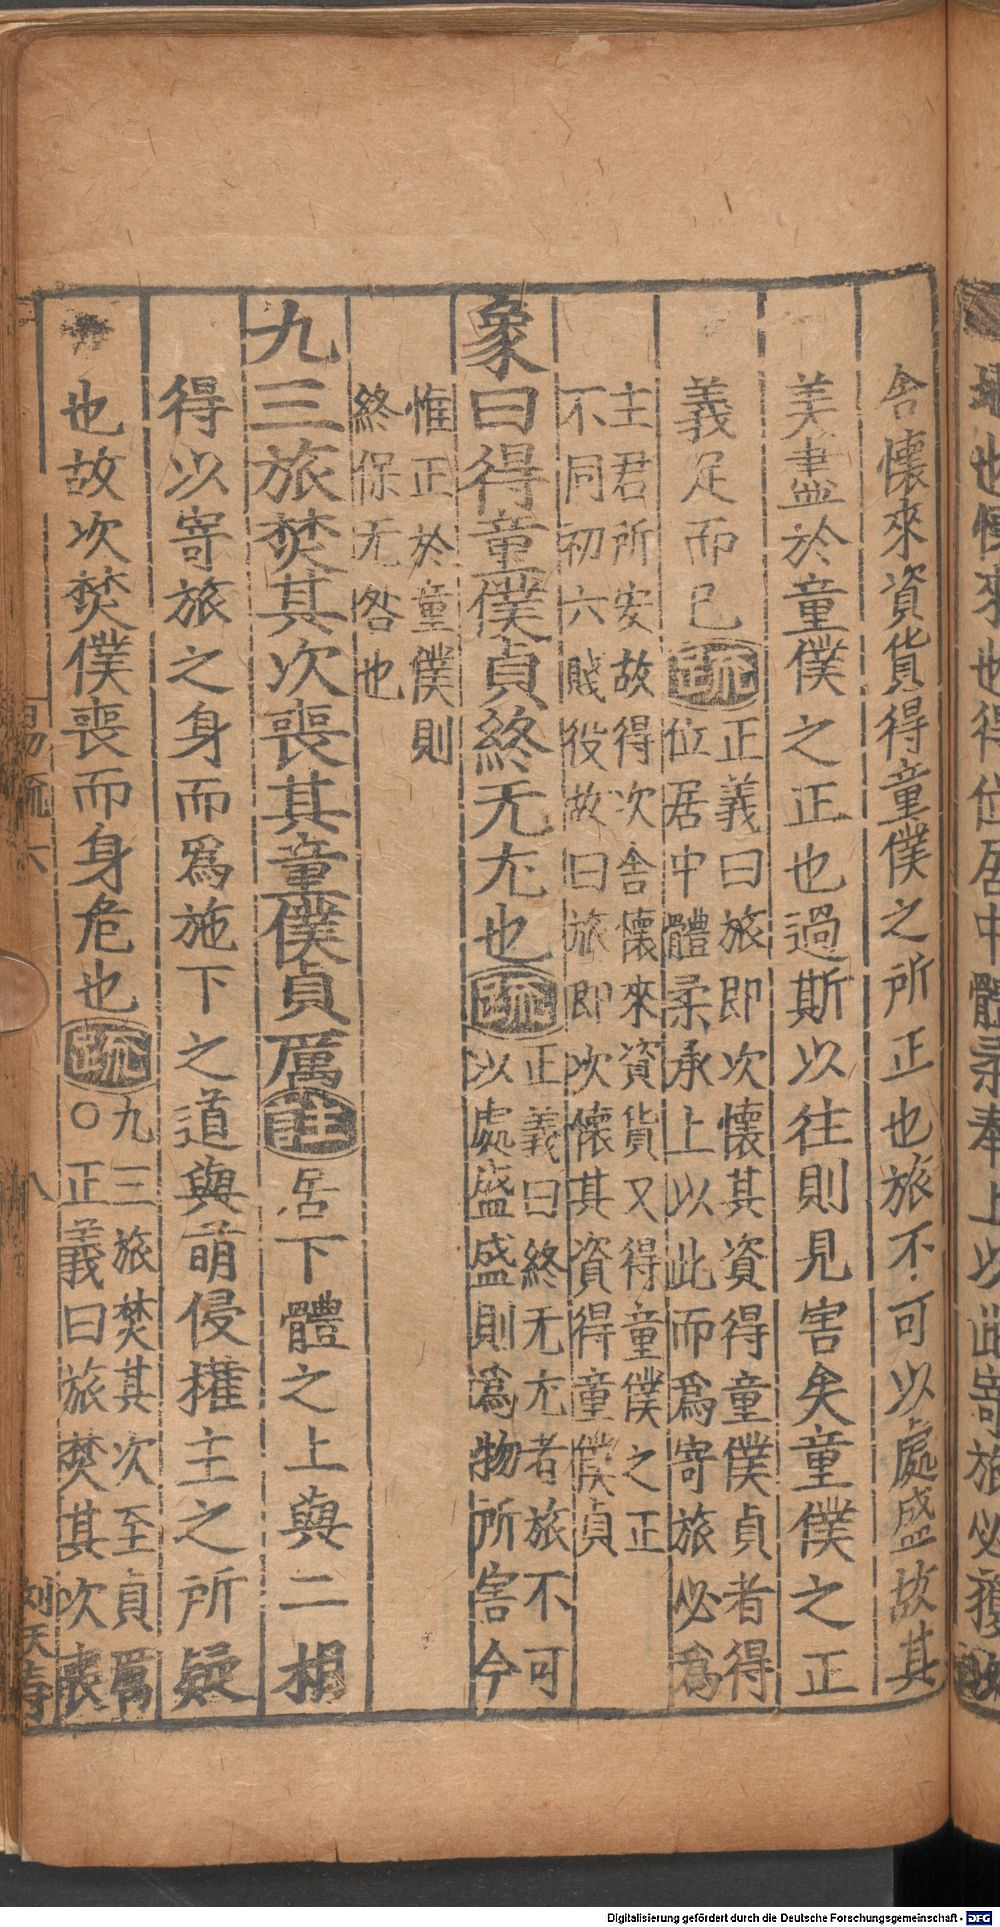 舍懷來資貨得童僕之所正也旅不可以處盛故其
美盡於童僕之正也過斯以往則見害矣童僕之正
義足而已疏正義曰旅即次懷其資得童僕貞者得
位居中體柔承上以此而爲寄旅必爲
主君所安故得次舍懷來資貨又得童僕之正
不同初六賤役故曰旅即次懷其資得童僕貞
象曰得童僕貞終无尤也疏正義曰終无尤者旅不可
以處盛盛則爲物所害今
惟正於童僕則
終保无咎也
九三旅焚其次喪其童僕貞厲註居下體之上與二相
得以寄旅之身而爲施下之道與萌侵權主之所疑
也故次焚僕喪而身危也疏九三旅焚其次至貞厲
○正義曰旅焚其次喪
易疏六
八
Digitalisierung gefördert durch die Deutsche Forschungsgemeinschaft - DFG